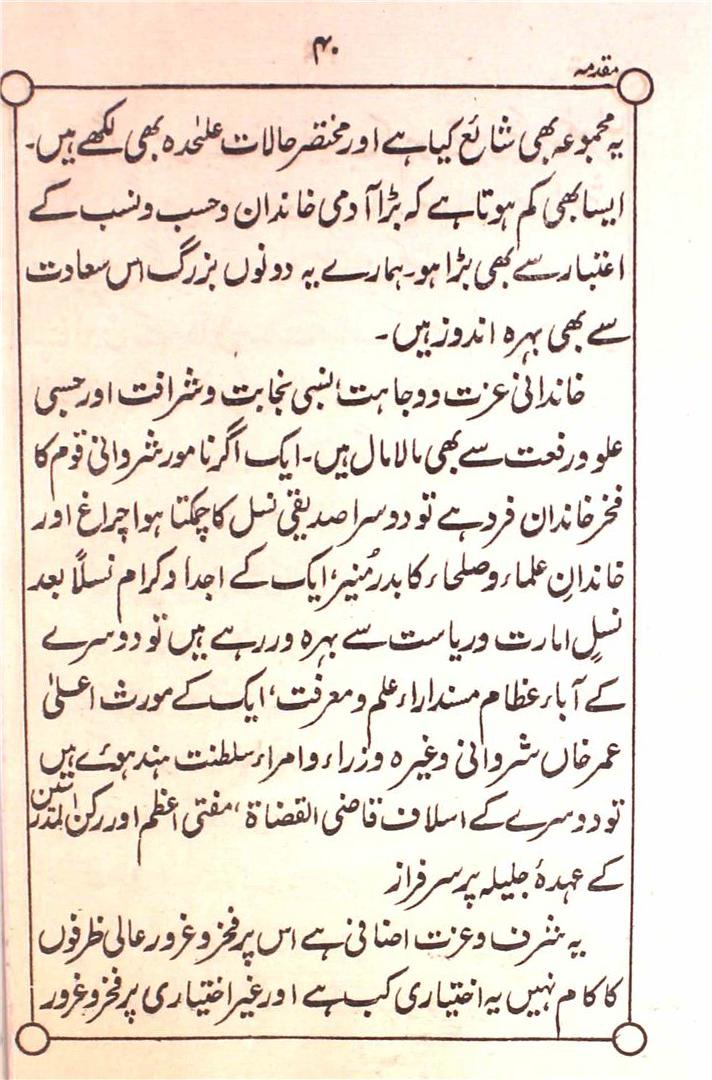 ۴۰
مقدمہ
یہ مجموعہ بھی شائع کیا ہے اور مختصر حالات علیٰحدہ بھی لکھے ہیں۔
ایسا بھی کم ہوتا ہے کہ بڑا آدمی خاندان و حسب و نسب کے
اعتبار سے بھی بڑا ہو۔ ہمارے یہ دونوں بزرگ اس سعادت
سے بھی بہرہ اندوز ہیں۔
خاندانی عزت و وجاہت، نسبی نجابت و شرافت اور حسبی
علو و رفعت سے بھی مالا مال ہیں۔ ایک اگر نامور شروانی قوم کا
فخرِ خاندان فرد ہے تو دوسرا صدیقی نسل کا چمکتا ہوا چراغ اور
خاندانِ علماء و صلحاء کا بدر مُنیر، ایک کے اجداد کرام نسلاً بعد
نسلٍ امارت و ریاست سے بہرہ ور رہے ہیں تو دوسرے
کے آباء عظام مسند اراء علم و معرفت، ایک کے مورث اعلیٰ
عمر خاں شروانی وغیرہ وزراء و امراء سلطنت ہند ہوئے ہیں
تو دوسرے کے اسلاف قاضی القضاۃ، مفتی اعظم اور رکن
کے عہدۂ جلیلہ پر سرفراز
یہ شرف و عزت اضافی ہے اس پر فخر و غرور عالی ظرفوں
کا کام نہیں یہ اختیاری کب ہے اور غیر اختیاری پر فخر و غرور